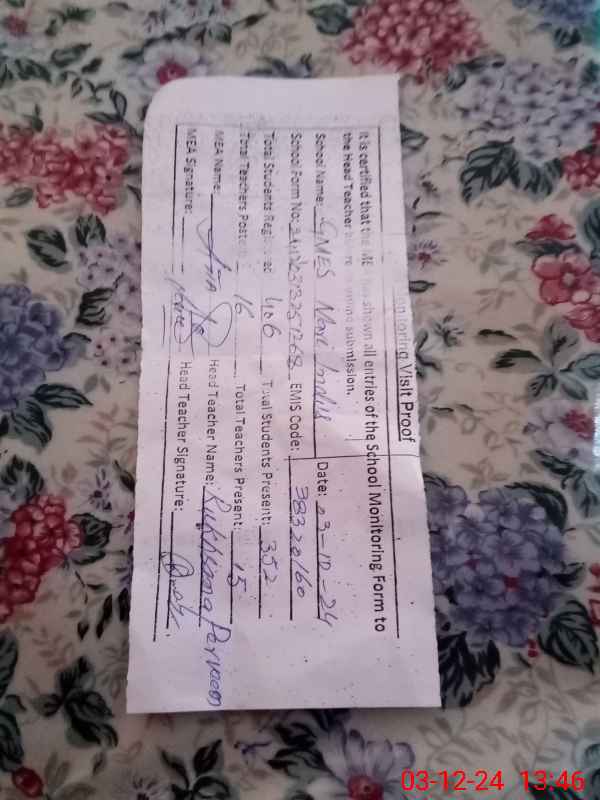 Monitoring Visit Proof
It is certified that the MEA has shown all entries of the School Monitoring Form to
the Head Teacher before online submission.
School Name: GMES Date: 03-12-24
School Form No: EMIS Code: 38320160
Total Students Registered 406 Total Students Present: 352
Total Teachers Posted: 16 Total Teachers Present: 15
MEA Name: Head Teacher Name: Rukhsana Parveen
MEA Signature: Head Teacher Signature:
03-12-24 13:46